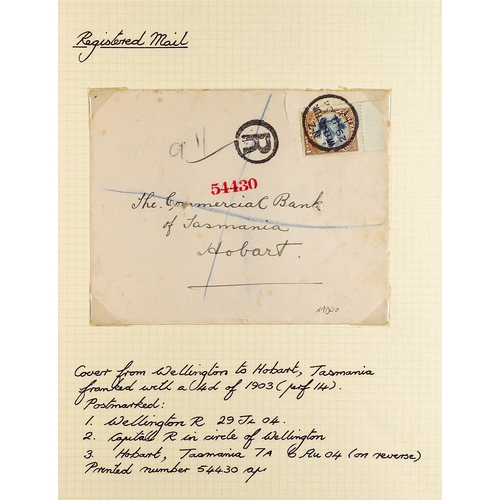 Registered Mail
R
54430
The Commercial Bank
of Tasmania
Hobart.
Cover from Wellington to Hobart, Tasmania
franked with a 4d of 1903 (perf 14).
Postmarked:
1. Wellington R 29 JL 04.
2. Capital R in circle of Wellington
3. Hobart, Tasmania 7A 6 AU 04 (on reverse)
Printed number 54430